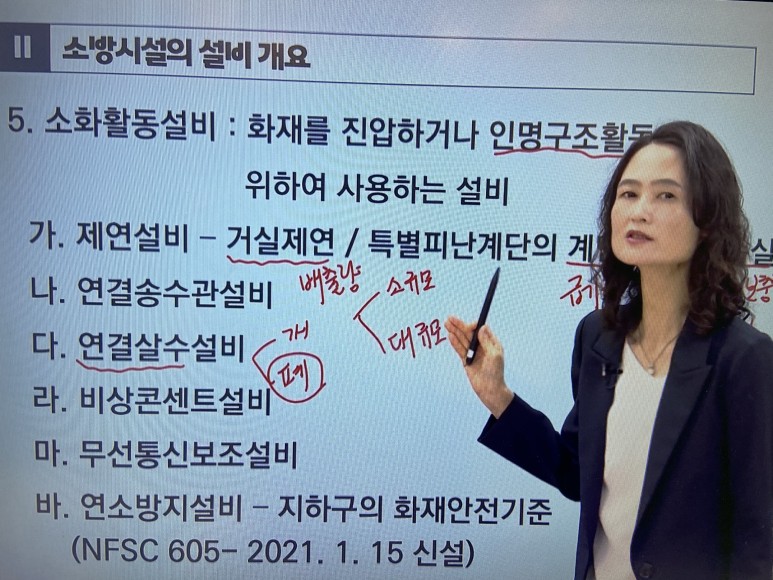 II 소방시설의 설비 개요
5. 소화활동설비 : 화재를 진압하거나 인명구조활동
위하여 사용하는 설비
가. 제연설비 – 거실제연 / 특별피난계단의 계 실
배출량 소규모 급기
나. 연결송수관설비
대규모
개
다. 연결살수설비
폐
라. 비상콘센트설비
마. 무선통신보조설비
바. 연소방지설비 – 지하구의 화재안전기준
(NFSC 605– 2021. 1. 15 신설)